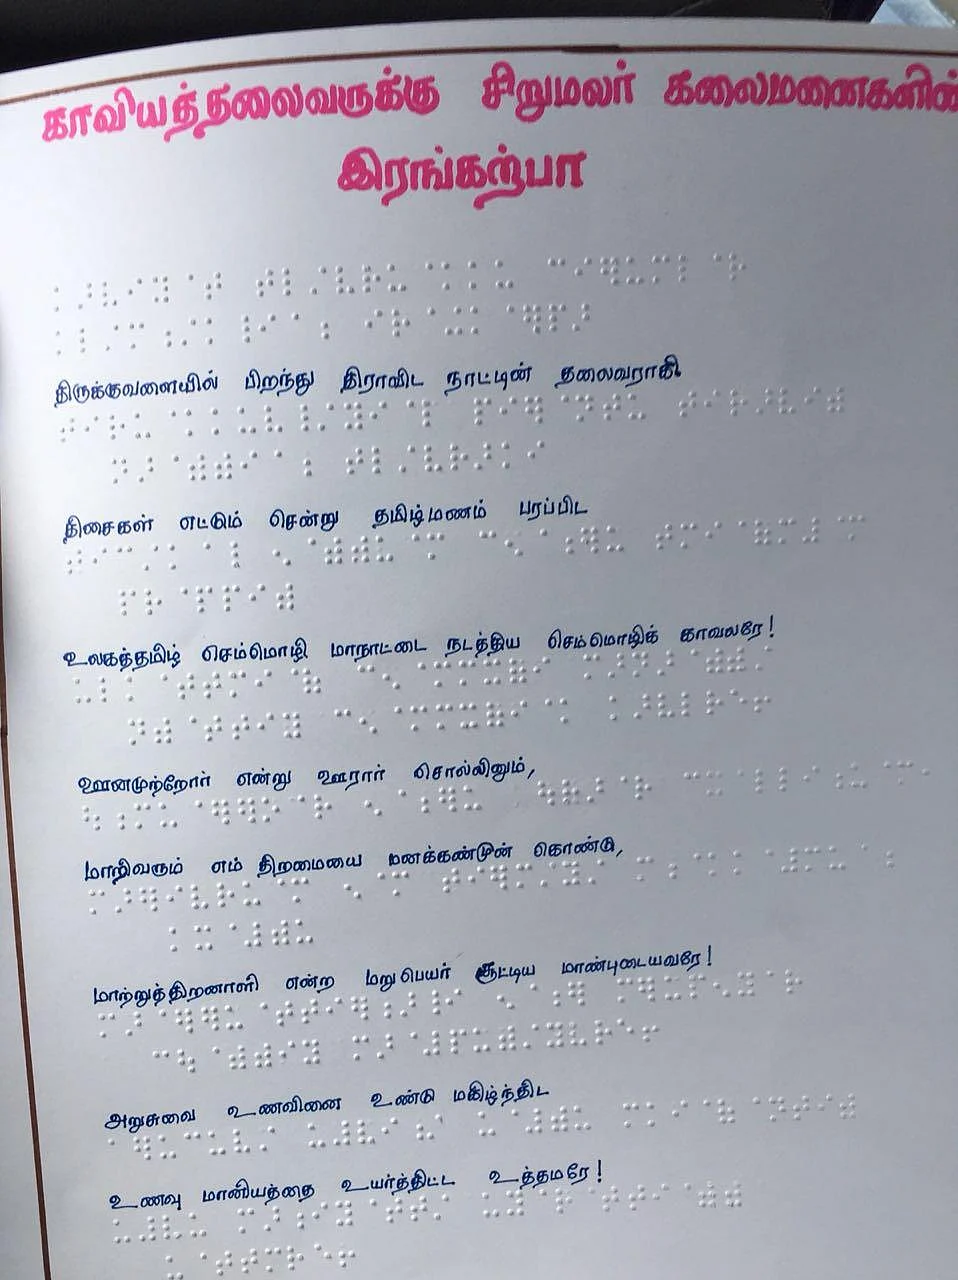 காவியத்தலைவருக்கு சிறுமலர் கலைமனைகளின்
இரங்கற்பா
திருக்குவளையில் பிறந்து திராவிட நாட்டின் தலைவராகி
திசைகள் எட்டும் சென்று தமிழ்மணம் பரப்பிட
உலகத்தமிழ் செம்மொழி மாநாட்டை நடத்திய செம்மொழிக் காவலரே!
ஊனமுற்றோர் என்று ஊரார் சொல்லினும்,
மாறிவரும் எம் திறமையை மனக்கண்முன் கொண்டு,
மாற்றுத்திறனாளி என்ற மறுபெயர் சூட்டிய மாண்புடையவரே!
அறுசுவை உணவினை உண்டு மகிழ்ந்திட
உணவு மானியத்தை உயர்த்திட்ட உத்தமரே!